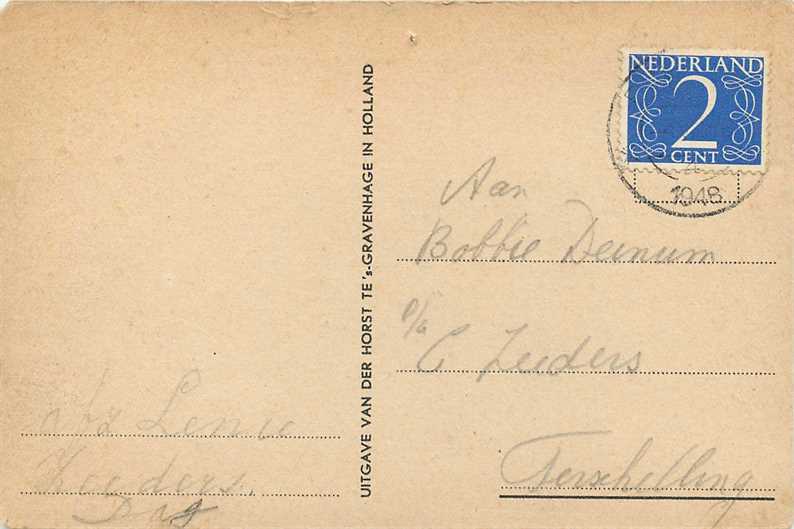 NEDERLAND
2
CENT
1948
UITGAVE VAN DER HORST TE 's-GRAVENHAGE IN HOLLAND
Aan
Bobbie Deinum
p/a
C Zeeders
Terschelling
Zeeders